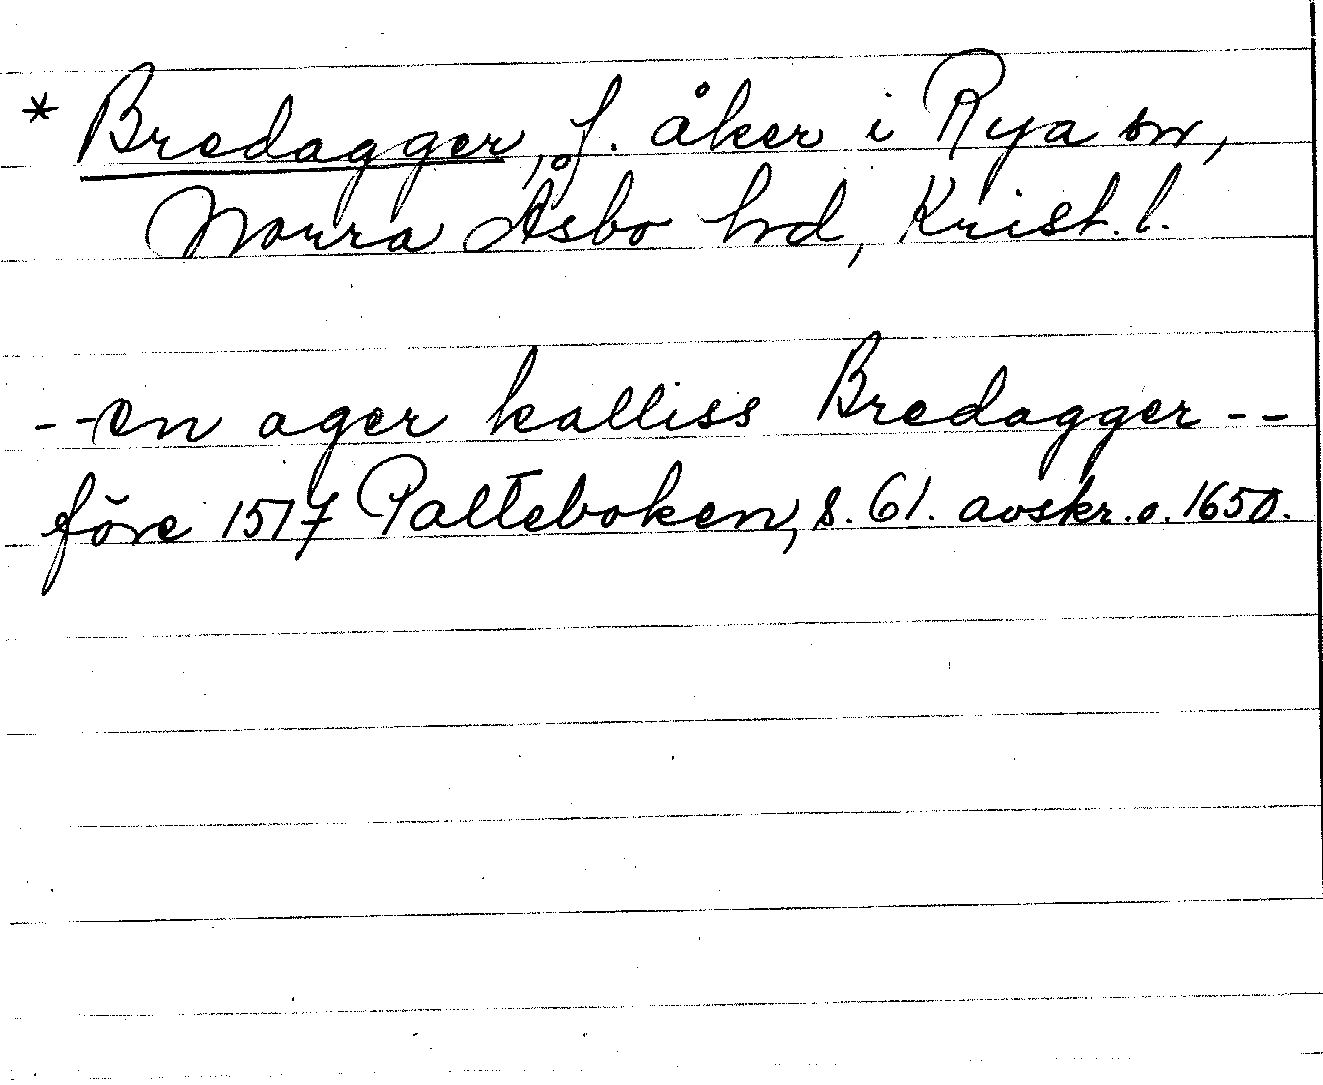 * Bredagger, f. åker i Rya sn,
Norra Åsbo hd, Krist. l.
--en ager kalliss Bredagger--
före 1517 Palteboken, s. 61. avskr. o. 1650.